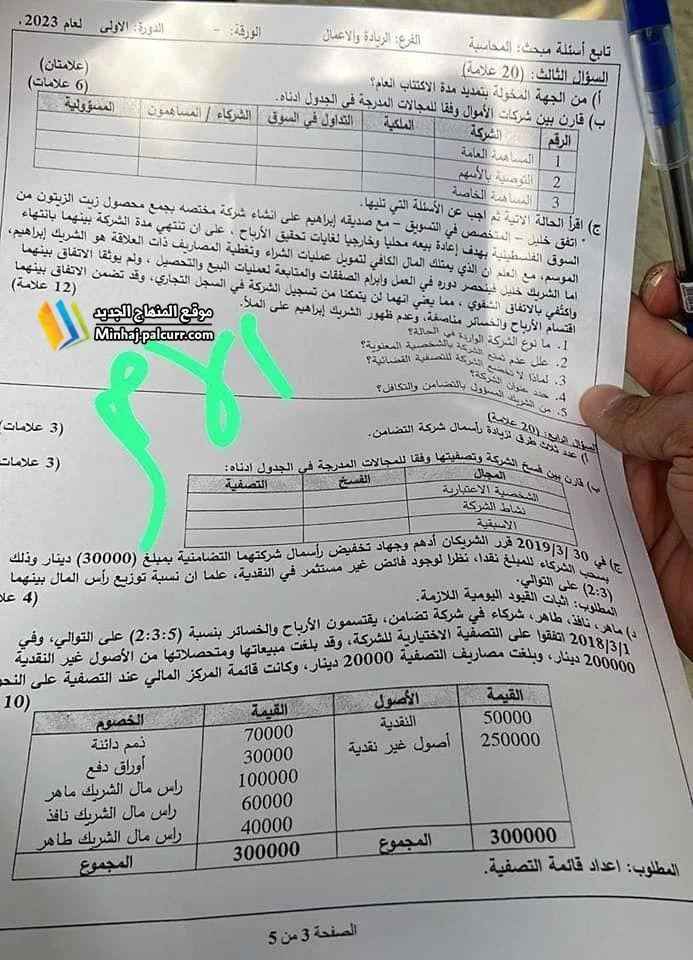 تابع أسئلة مبحث: المحاسبة الفرع: الريادة والاعمال الورقة: - الدورة: الاولى لعام 2023.
السؤال الثالث: (20 علامة)
أ) من الجهة المخولة بتمديد مدة الاكتتاب العام؟ (علامتان)
ب) قارن بين شركات الأموال وفقا للمجالات المدرجة في الجدول ادناه. (6 علامات)
الرقم الشركة الملكية التداول في السوق الشركاء / المساهمون المسؤولية
1 المساهمة العامة
2 التوصية بالأسهم
3 المساهمة الخاصة
ج) اقرأ الحالة الاتية ثم اجب عن الأسئلة التي تليها.
اتفق خليل - المتخصص في التسويق - مع صديقه إبراهيم على انشاء شركة مختصه بجمع محصول زيت الزيتون من
السوق الفلسطينية بهدف إعادة بيعه محليا وخارجيا لغايات تحقيق الأرباح ، على ان تنتهي مدة الشركة بينهما بانتهاء
الموسم، مع العلم ان الذي يمتلك المال الكافي لتمويل عمليات الشراء وتغطية المصاريف ذات العلاقة هو الشريك إبراهيم،
اما الشريك خليل فينحصر دوره في العمل وابرام الصفقات والمتابعة لعمليات البيع والتحصيل ، ولم يوثقا الاتفاق بينهما
واكتفي بالاتفاق الشفوي ، مما يعني انهما لن يتمكنا من تسجيل الشركة في السجل التجاري، وقد تضمن الاتفاق بينهما
اقتسام الأرباح والخسائر مناصفة، وعدم ظهور الشريك إبراهيم على الملأ. (12 علامة)
1. ما نوع الشركة الواردة في الحالة؟
2. علل عدم تمتع الشركة بالشخصية المعنوية؟
3. لماذا لا تخضع الشركة للتصفية القضائية؟
4. حدد عنوان الشركة؟
5. من الشريك المسؤول بالتضامن والتكافل؟
موقع المنهاج الجديد
Minhaj.palcurr.com
السؤال الرابع: (20 علامة)
أ) عدد ثلاث طرق لزيادة رأسمال شركة التضامن. (3 علامات)
ب) قارن بين فسخ الشركة وتصفيتها وفقا للمجالات المدرجة في الجدول ادناه: (3 علامات
المجال الفسخ التصفية
الشخصية الاعتبارية
نشاط الشركة
الاسبقية
ج) في 30 /3/ 2019 قرر الشريكان أدهم وجهاد تخفيض رأسمال شركتهما التضامنية بمبلغ (30000) دينار وذلك
بسحب الشركاء للمبلغ نقدا، نظرا لوجود فائض غير مستثمر في النقدية، علما ان نسبة توزيع رأس المال بينهما
(2:3) على التوالي.
المطلوب: اثبات القيود اليومية اللازمة. (4 علا
د) ماهر، نافذ، طاهر، شركاء في شركة تضامن، يقتسمون الأرباح والخسائر بنسبة (2:3:5) على التوالي، وفي
2018/3/1 اتفقوا على التصفية الاختيارية للشركة، وقد بلغت مبيعاتها ومتحصلاتها من الأصول غير النقدية
200000 دينار، وبلغت مصاريف التصفية 20000 دينار، وكانت قائمة المركز المالي عند التصفية على النحو
10)
القيمة الأصول القيمة الخصوم
50000 النقدية 70000 ذمم دائنة
250000 أصول غير نقدية 30000 أوراق دفع
100000 راس مال الشريك ماهر
60000 راس مال الشريك نافذ
40000 راس مال الشريك طاهر
300000 المجموع 300000 المجموع
المطلوب: اعداد قائمة التصفية.
الصفحة 3 من 5